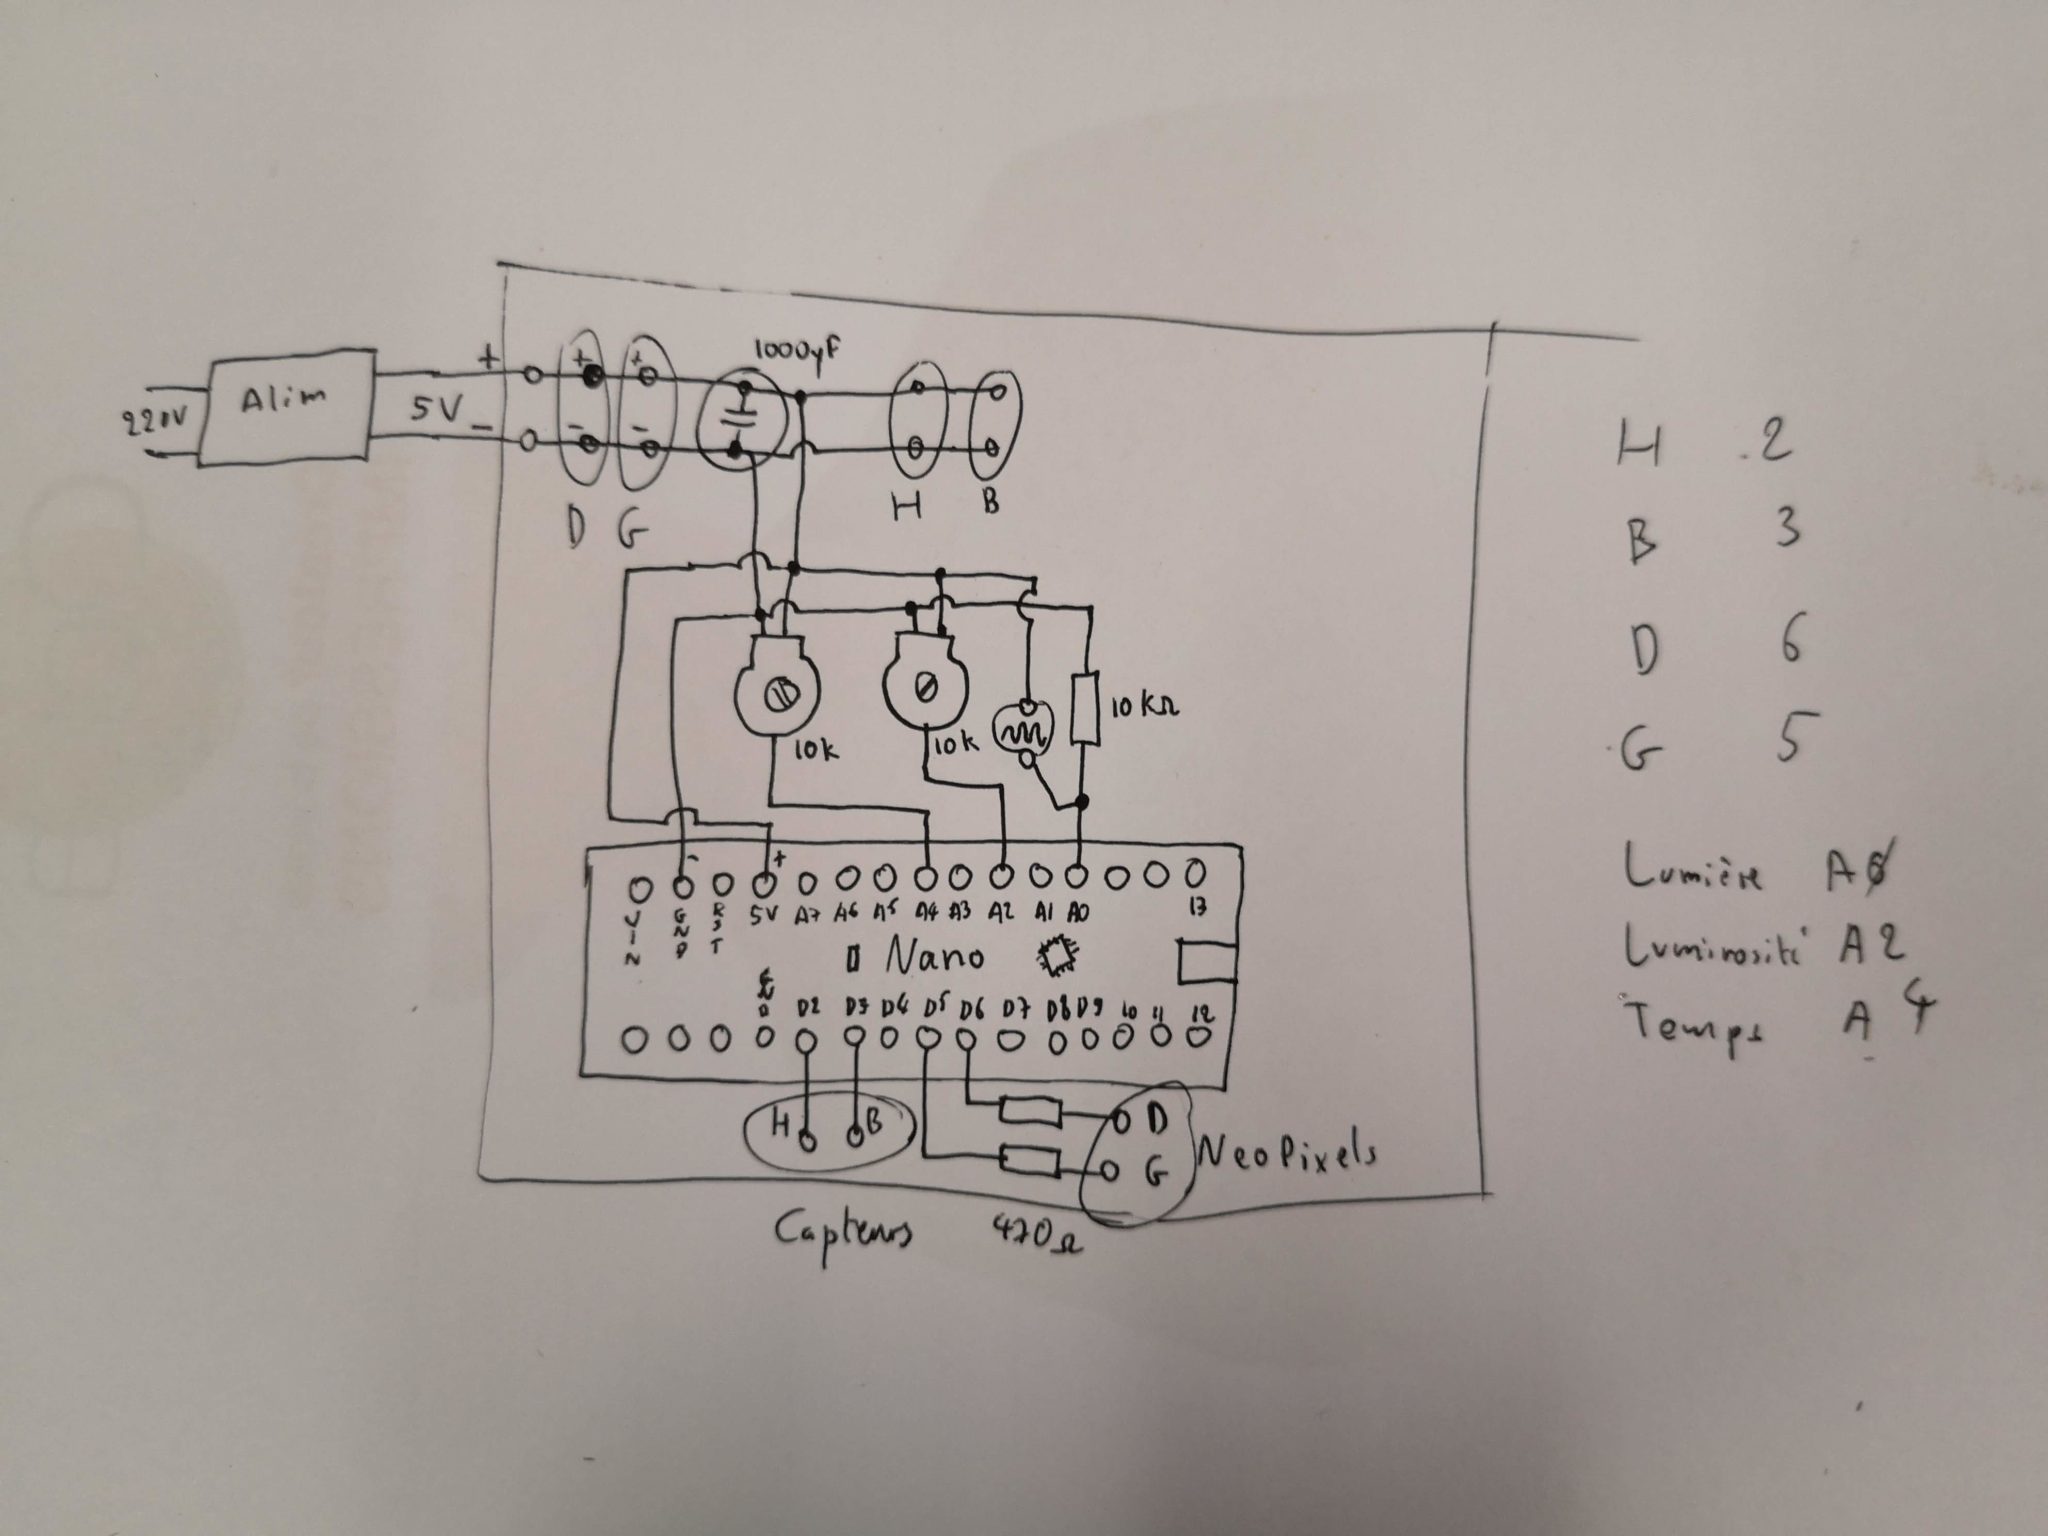 1000µF
+ + +
220V Alim 5V
- - -
D G H B
10k 10k 10kΩ
- +
VIN GND RST 5V A7 A6 A5 A4 A3 A2 A1 A0 13
Nano
GND D2 D3 D4 D5 D6 D7 D8 D9 10 11 12
H B
D
G
NeoPixels
Capteurs 470Ω
H 2
B 3
D 6
G 5
Lumière A0
Luminosité A2
Temps A4